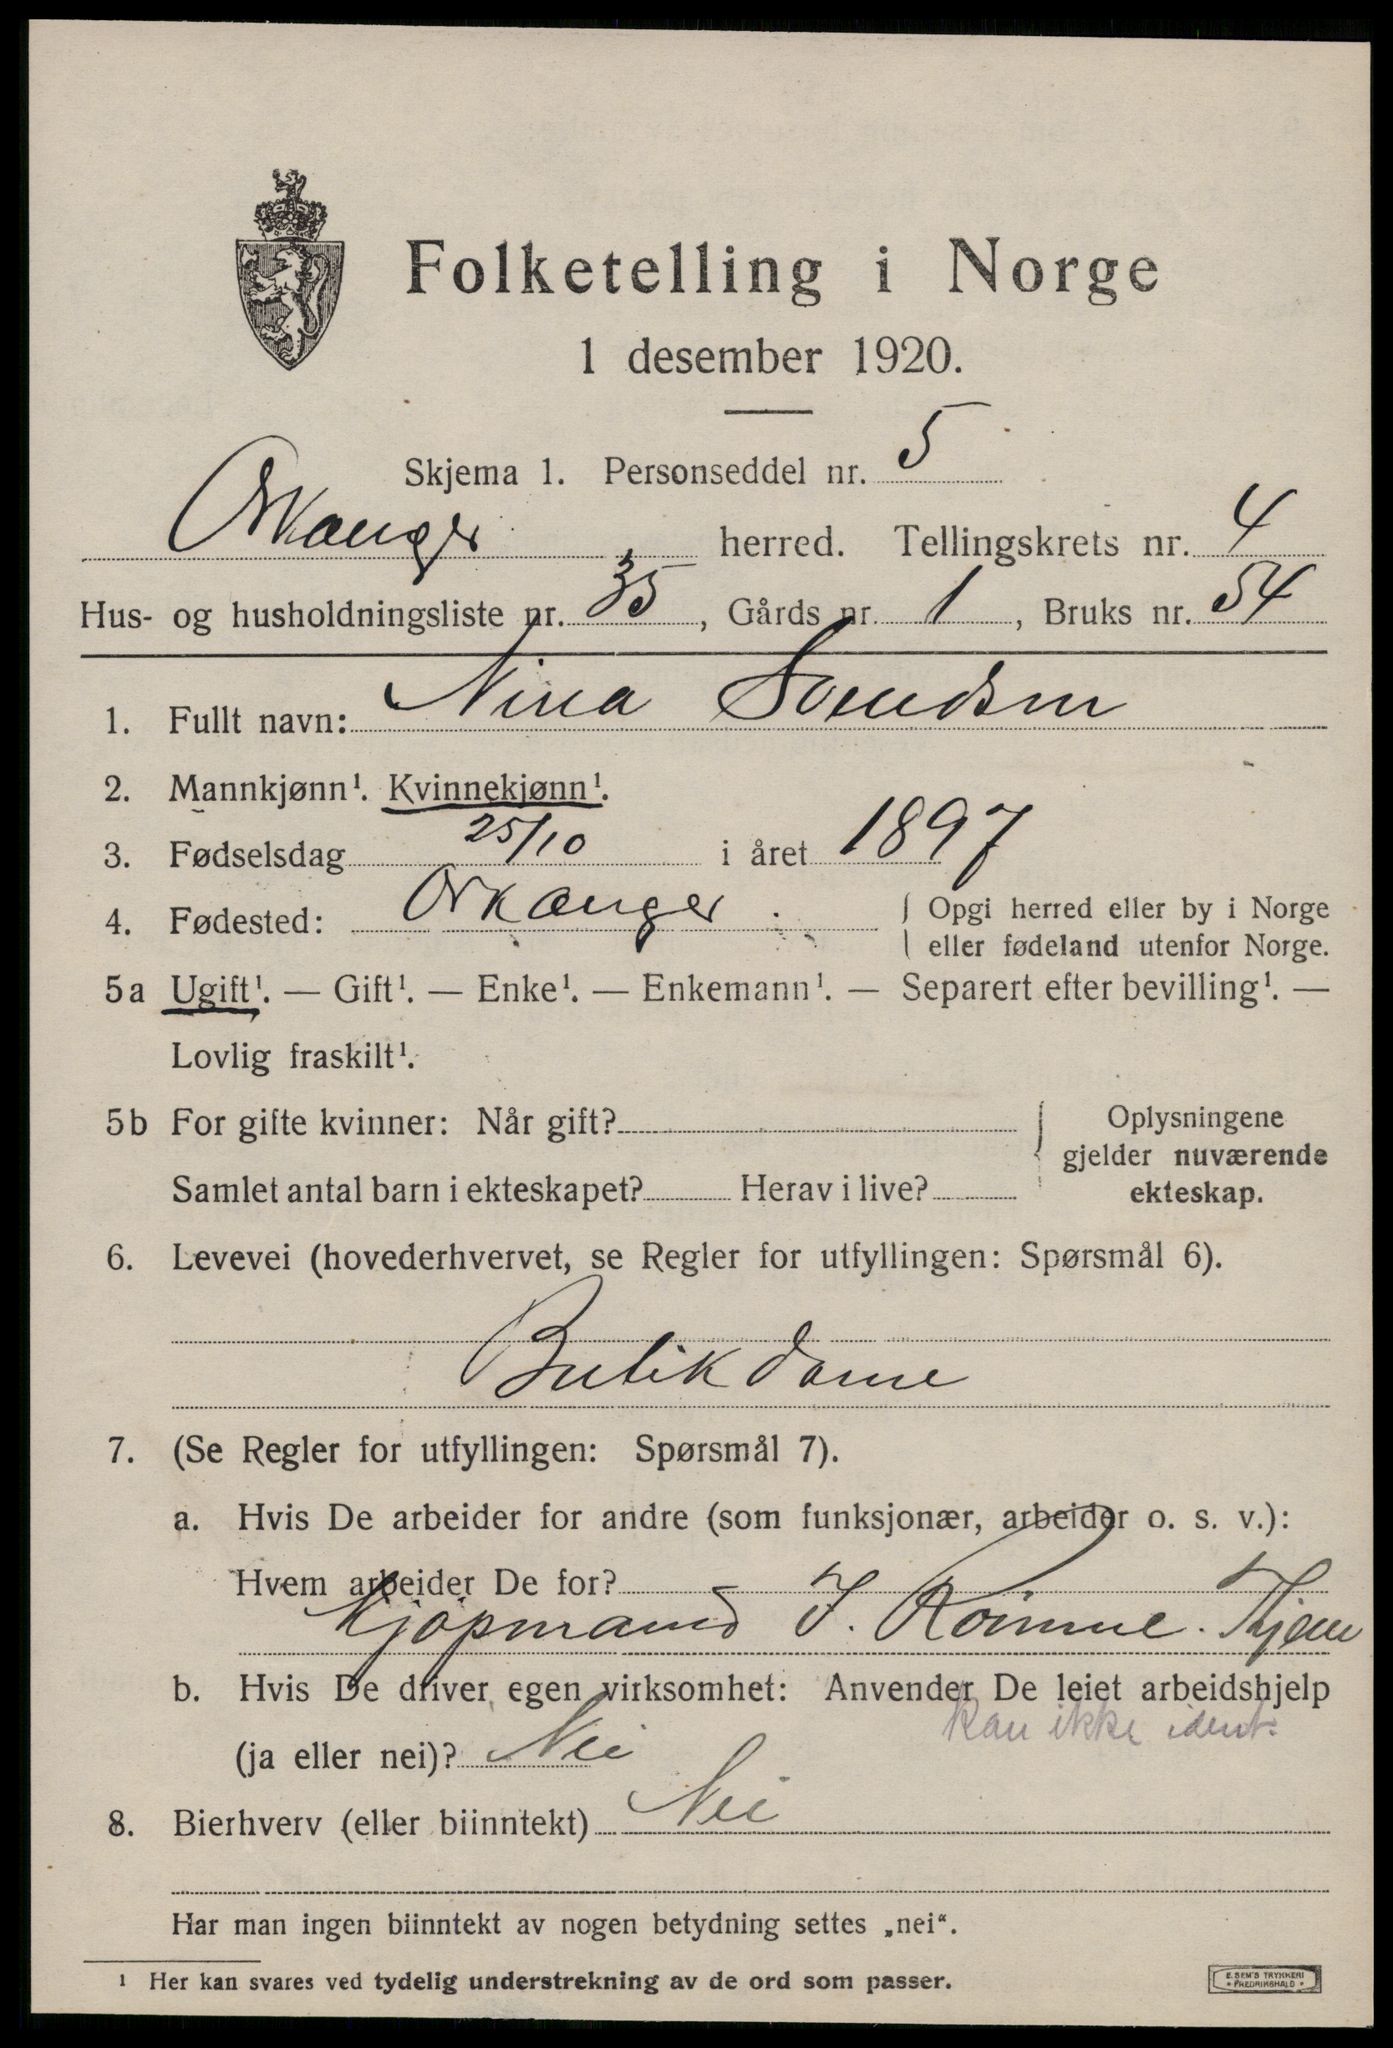 Folketelling i Norge
1 desember 1920.
Skjema 1. Personseddel nr. 5
Orkanger herred. Tellingskrets nr. 4
Hus- og husholdningsliste nr. 35, Gårds nr. 1, Bruks nr. 54
1. Fullt navn: Nina Svendsen
2. Mannkjønn¹. Kvinnekjønn¹.
3. Fødselsdag 25/10 i året 1897
4. Fødested: Orkanger. { Opgi herred eller by i Norge
eller fødeland utenfor Norge.
5a Ugift¹. — Gift¹. — Enke¹. — Enkemann¹. — Separert efter bevilling¹. —
Lovlig fraskilt¹.
5b For gifte kvinner: Når gift? { Oplysningene
gjelder nuværende
Samlet antal barn i ekteskapet? Herav i live? ekteskap.
6. Levevei (hovederhvervet, se Regler for utfyllingen: Spørsmål 6).
Butik dame
7. (Se Regler for utfyllingen: Spørsmål 7).
a. Hvis De arbeider for andre (som funksjonær, arbeider o. s. v.):
Hvem arbeider De for?
Kjøpmand J. Rømme.
b. Hvis De driver egen virksomhet: Anvender De leiet arbeidshjelp
kan ikke ident.
(ja eller nei)? Nei
8. Bierhverv (eller biinntekt) Nei
Har man ingen biinntekt av nogen betydning settes „nei“.
¹ Her kan svares ved tydelig understrekning av de ord som passer.
E. SEM'S TRYKKERI
* FREDRIKSHALD *